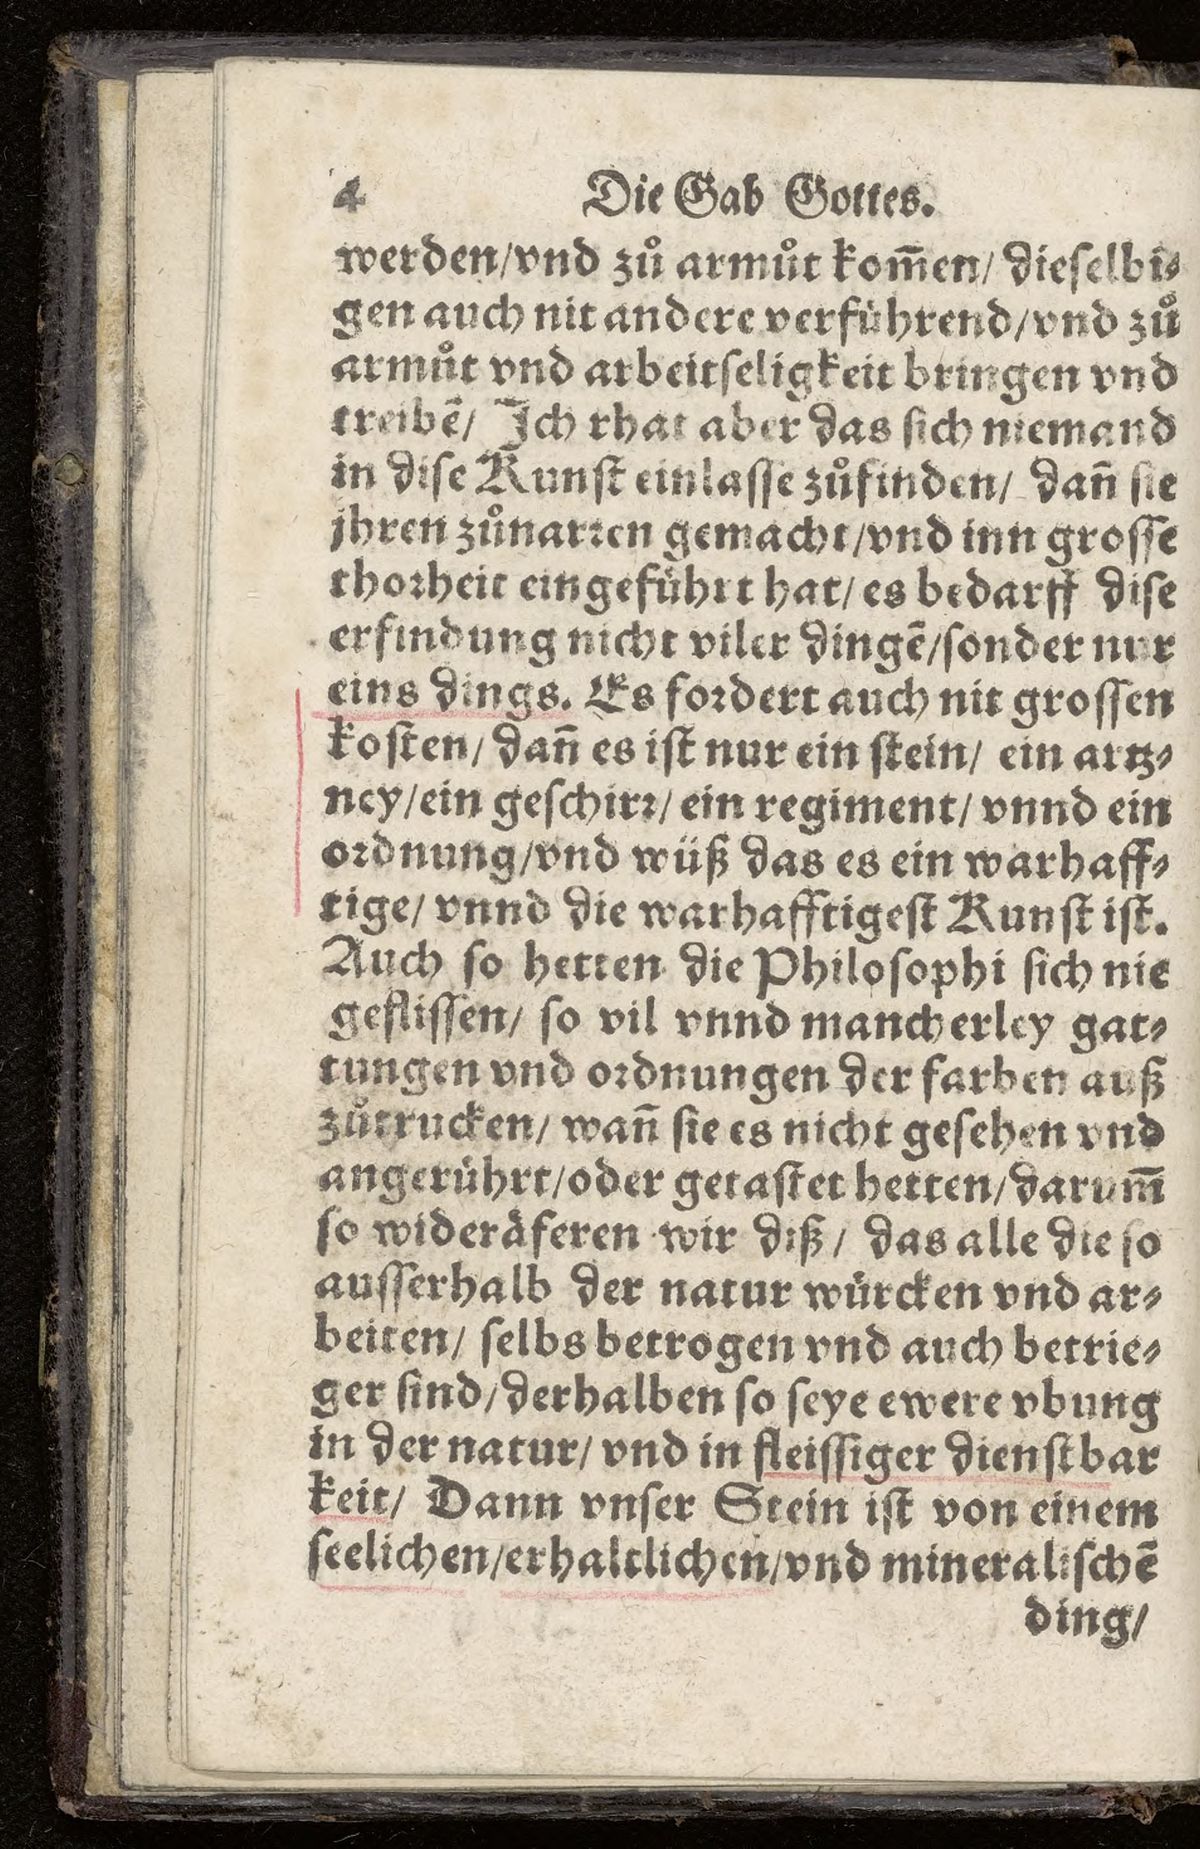 4 Die Gab Gottes.
werden/vnd zů armůt kom̃en/ dieselbi-
gen auch nit andere verführend/vnd zů
armůt vnd arbeitseligkeit bringen vnd
treibẽ/ Ich rhat aber das sich niemand
in dise Kunst einlasse zůfinden/ dañ sie
jhren zůnarren gemacht/vnd inn grosse
thorheit eingeführt hat/ es bedarff dise
erfindung nicht viler dingẽ/sonder nur
eins dings. Es fordert auch nit grossen
kosten/ dañ es ist nur ein stein/ ein artz-
ney/ein geschirr/ ein regiment/ vnnd ein
ordnung/vnd wüß das es ein warhaff-
tige/ vnnd die warhafftigest Kunst ist.
Auch so hetten die Philosophi sich nie
geflissen/ so vil vnnd mancherley gat-
tungen vnd ordnungen der farben auß
zůtrucken/ wañ sie es nicht gesehen vnd
angerührt/oder getastet hetten/darum̃
so wideräferen wir diß/ das alle die so
ausserhalb der natur würcken vnd ar-
beiten/ selbs betrogen vnd auch betrie-
ger sind/derhalben so seye ewere vbung
in der natur/ vnd in fleissiger dienstbar
keit/ Dann vnser Stein ist von einem
seelichen/erhaltlichen/vnd mineralischẽ
ding/